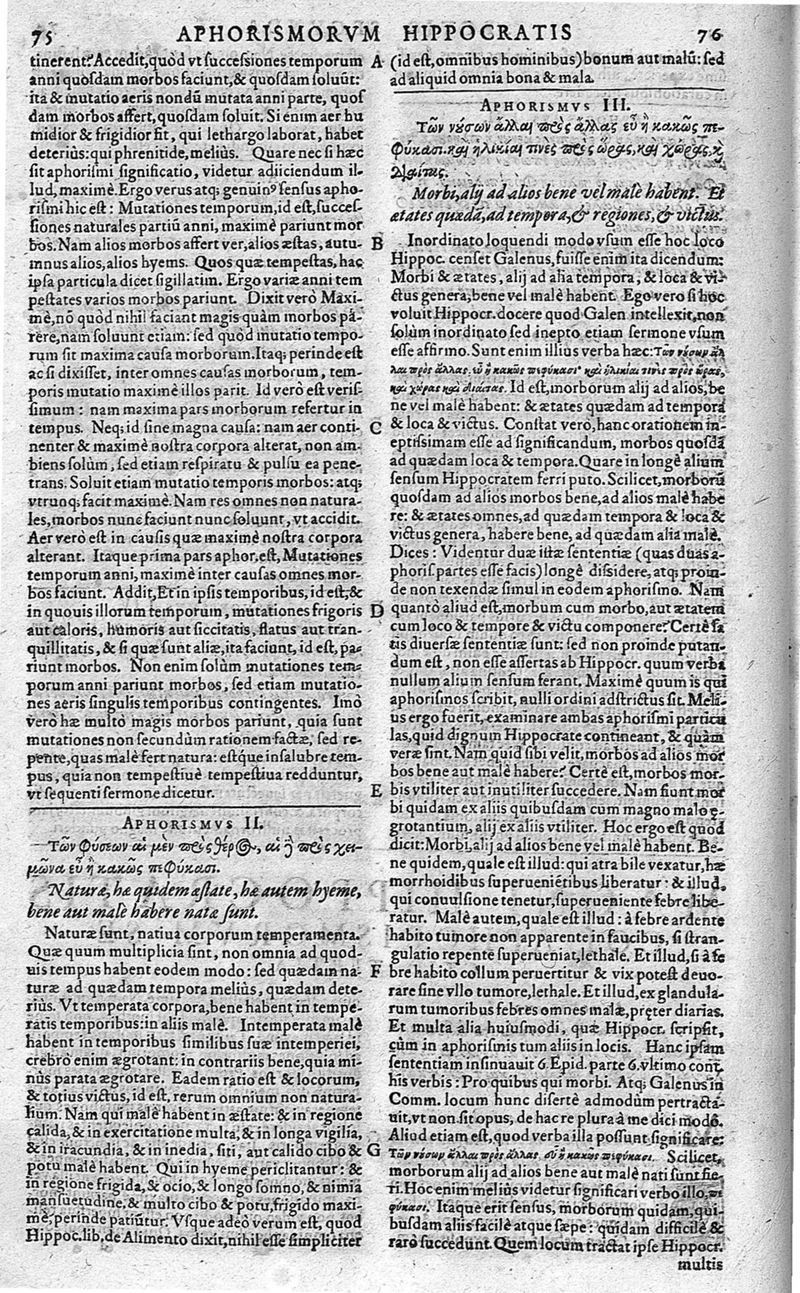 75 APHORISMORVM HIPPOCRATIS 76
tinerent? Accedit, quòd vt successiones temporum
anni quosdam morbos faciunt, & quosdam soluũt:
ita & mutatio aeris nondũ mutata anni parte, quos
dam morbos affert, quosdam soluit. Si enim aer hu
midior & frigidior fit, qui lethargo laborat, habet
deterius: qui phrenitide, melius. Quare nec si hæc
sit aphorismi significatio, videtur adijciendum il-
lud, maximè. Ergo verus atq; genuin⁹ sensus apho-
rismi hic est: Mutationes temporum, id est, succes-
siones naturales partiũ anni, maximè pariunt mor
bos. Nam alios morbos affert ver, alios æstas, autu-
mnus alios, alios hyems. Quos quæ tempestas, hac
ipsa particula dicet sigillatim. Ergo variæ anni tem
pestates varios morbos pariunt. Dixit verò Maxi-
mè, nõ quòd nihil faciant magis quàm morbos pa-
rere, nam soluunt etiam: sed quòd mutatio tempo-
rum sit maxima causa morborum. Itaq; perinde est
ac si dixisset, inter omnes causas morborum, tem-
poris mutatio maximè illos parit. Id verò est veris-
simum: nam maxima pars morborum refertur in
tempus. Neq; id sine magna causa: nam aer conti-
nenter & maximè nostra corpora alterat, non am-
biens solùm, sed etiam respiratu & pulsu ea pene-
trans. Soluit etiam mutatio temporis morbos: atq;
vtrunq; facit maximè. Nam res omnes non natura-
les, morbos nunc faciunt nunc soluunt, vt accidit.
Aer verò est in causis quæ maximè nostra corpora
alterant. Itaque prima pars aphor. est, Mutationes
temporum anni, maximè inter causas omnes mor-
bos faciunt. Addit, Et in ipsis temporibus, id est, &
in quouis illorum temporum, mutationes frigoris
aut caloris, humoris aut siccitatis, flatus aut tran-
quillitatis, & si quæ sunt aliæ, ita faciunt, id est, pa-
riunt morbos. Non enim solùm mutationes tem-
porum anni pariunt morbos, sed etiam mutatio-
nes aeris singulis temporibus contingentes. Imò
verò hæ multò magis morbos pariunt, quia sunt
mutationes non secundùm rationem factæ, sed re-
pente, quas malè fert natura: estq́ue insalubre tem-
pus, quia non tempestiuè tempestiua redduntur,
vt sequenti sermone dicetur.
APHORISMVS II.
Τῶν φύσεων αἱ μὲν πρὸς θέρος, αἱ δὲ πρὸς χει-
μῶνα εὖ ἢ κακῶς πεφύκασι.
Naturæ, hæ quidem æstate, hæ autem hyeme,
bene aut male habere natæ sunt.
Naturæ sunt, natiua corporum temperamenta.
Quæ quum multiplicia sint, non omnia ad quod-
uis tempus habent eodem modo: sed quædam na-
turæ ad quædam tempora melius, quædam dete-
rius. Vt temperata corpora, bene habent in tempe-
ratis temporibus: in aliis malè. Intemperata malè
habent in temporibus similibus suæ intemperiei,
crebrò enim ægrotant: in contrariis bene, quia mi-
nùs parata ægrotare. Eadem ratio est & locorum,
& totius victus, id est, rerum omnium non natura-
lium. Nam qui malè habent in æstate: & in regione
calida, & in exercitatione multa, & in longa vigilia,
& in iracundia, & in inedia, siti, aut calido cibo &
potu malè habent. Qui in hyeme periclitantur: &
in regione frigida, & ocio, & longo somno, & nimia
mansuetudine, & multo cibo & potu, frigido maxi-
mè, perinde patiũtur. Vsque adeò verum est, quod
Hippoc. lib. de Alimento dixit, nihil esse simpliciter
A
B
C
D
E
F
G
(id est, omnibus hominibus) bonum aut malũ: sed
ad aliquid omnia bona & mala.
APHORISMVS III.
Τῶν νούσων ἄλλαι πρὸς ἄλλας εὖ ἢ κακῶς πε-
φύκασι. καὶ ἡλικίαι τινὲς πρὸς ὥρας, καὶ χώρας, κỳ
διαίτας.
Morbi, alij ad alios bene vel malè habent. Et
ætates quædã, ad tempora, & regiones, & victus.
Inordinato loquendi modo vsum esse hoc loco
Hippoc. censet Galenus, fuisse enim ita dicendum:
Morbi & ætates, alij ad alia tempora, & loca & vi-
ctus genera, bene vel malè habent. Ego vero si hoc
voluit Hippocr. docere quod Galen intellexit, non
solùm inordinato sed inepto etiam sermone vsum
esse affirmo. Sunt enim illius verba hæc: Τῶν νόσων ἄλ
λαι πρὸς ἄλλας. εὖ ἢ κακῶς πεφύκασι· καὶ ἡλικίαι τινὲς πρὸς ὥρας,
καὶ χώρας καὶ διαίτας. Id est, morborum alij ad alios, be
ne vel malè habent: & ætates quædam ad tempora
& loca & victus. Constat verò, hanc orationem in-
eptissimam esse ad significandum, morbos quosdã
ad quædam loca & tempora. Quare in longè alium
sensum Hippocratem ferri puto. Scilicet, morborũ
quosdam ad alios morbos bene, ad alios malè habe
re: & ætates omnes, ad quædam tempora & loca &
victus genera, habere bene, ad quædam alia malè.
Dices: Videntur duæ istæ sententiæ (quas duas a-
phoris. partes esse facis) longè dissidere, atq; proin-
de non texendæ simul in eodem aphorismo. Nam
quantò aliud est, morbum cum morbo, aut ætatem
cum loco & tempore & victu componere? Certè sa
tis diuersæ sententiæ sunt: sed non proinde putan-
dum est, non esse assertas ab Hippocr. quum verba
nullum alium sensum ferant. Maximè quum is qui
aphorismos scribit, nulli ordini adstrictus sit. Meli-
us ergo fuerit, examinare ambas aphorismi particu
las, quid dignum Hippocrate contineant, & quàm
veræ sint. Nam quid sibi velit, morbos ad alios mor
bos bene aut malè habere? Certè est, morbos mor-
bis vtiliter aut inutiliter succedere. Nam fiunt mor
bi quidam ex aliis quibusdam cum magno malo ę-
grotantium, alij ex aliis vtiliter. Hoc ergo est quod
dicit: Morbi, alij ad alios bene vel malè habent. Be-
ne quidem, quale est illud: qui atra bile vexatur, hæ
morrhoidibus superueniẽtibus liberatur: & illud,
qui conuulsione tenetur, superueniente febre libe-
ratur. Malè autem, quale est illud: à febre ardente
habito tumore non apparente in faucibus, si stran-
gulatio repente superueniat, lethale. Et illud, si à fe
bre habito collum peruertitur & vix potest deuo-
rare sine vllo tumore, lethale. Et illud, ex glandula-
rum tumoribus febres omnes malæ, pręter diarias.
Et multa alia huiusmodi, quæ Hippocr. scripsit,
cùm in aphorismis tum aliis in locis. Hanc ipsam
sententiam insinuauit 6. Epid. parte 6. vltimo cont.
his verbis: Pro quibus qui morbi. Atq; Galenus in
Comm. locum hunc disertè admodum pertractà-
uit, vt non sit opus, de hac re plura à me dici modò.
Aliud etiam est, quod verba illa possunt significare:
Τῶν νόσων ἄλλαι πρὸς ἄλλας, εὖ ἢ κακῶς πεφύκασι. Scilicet,
morborum alij ad alios bene aut malè nati sunt fie-
ri. Hoc enim melius videtur significari verbo illo, πε
φύκασι. Itaque erit sensus, morborum quidam, qui-
busdam aliis facilè atque sæpe: quidam difficilè &
rarò succedunt. Quem locum tractat ipse Hippocr.
multis